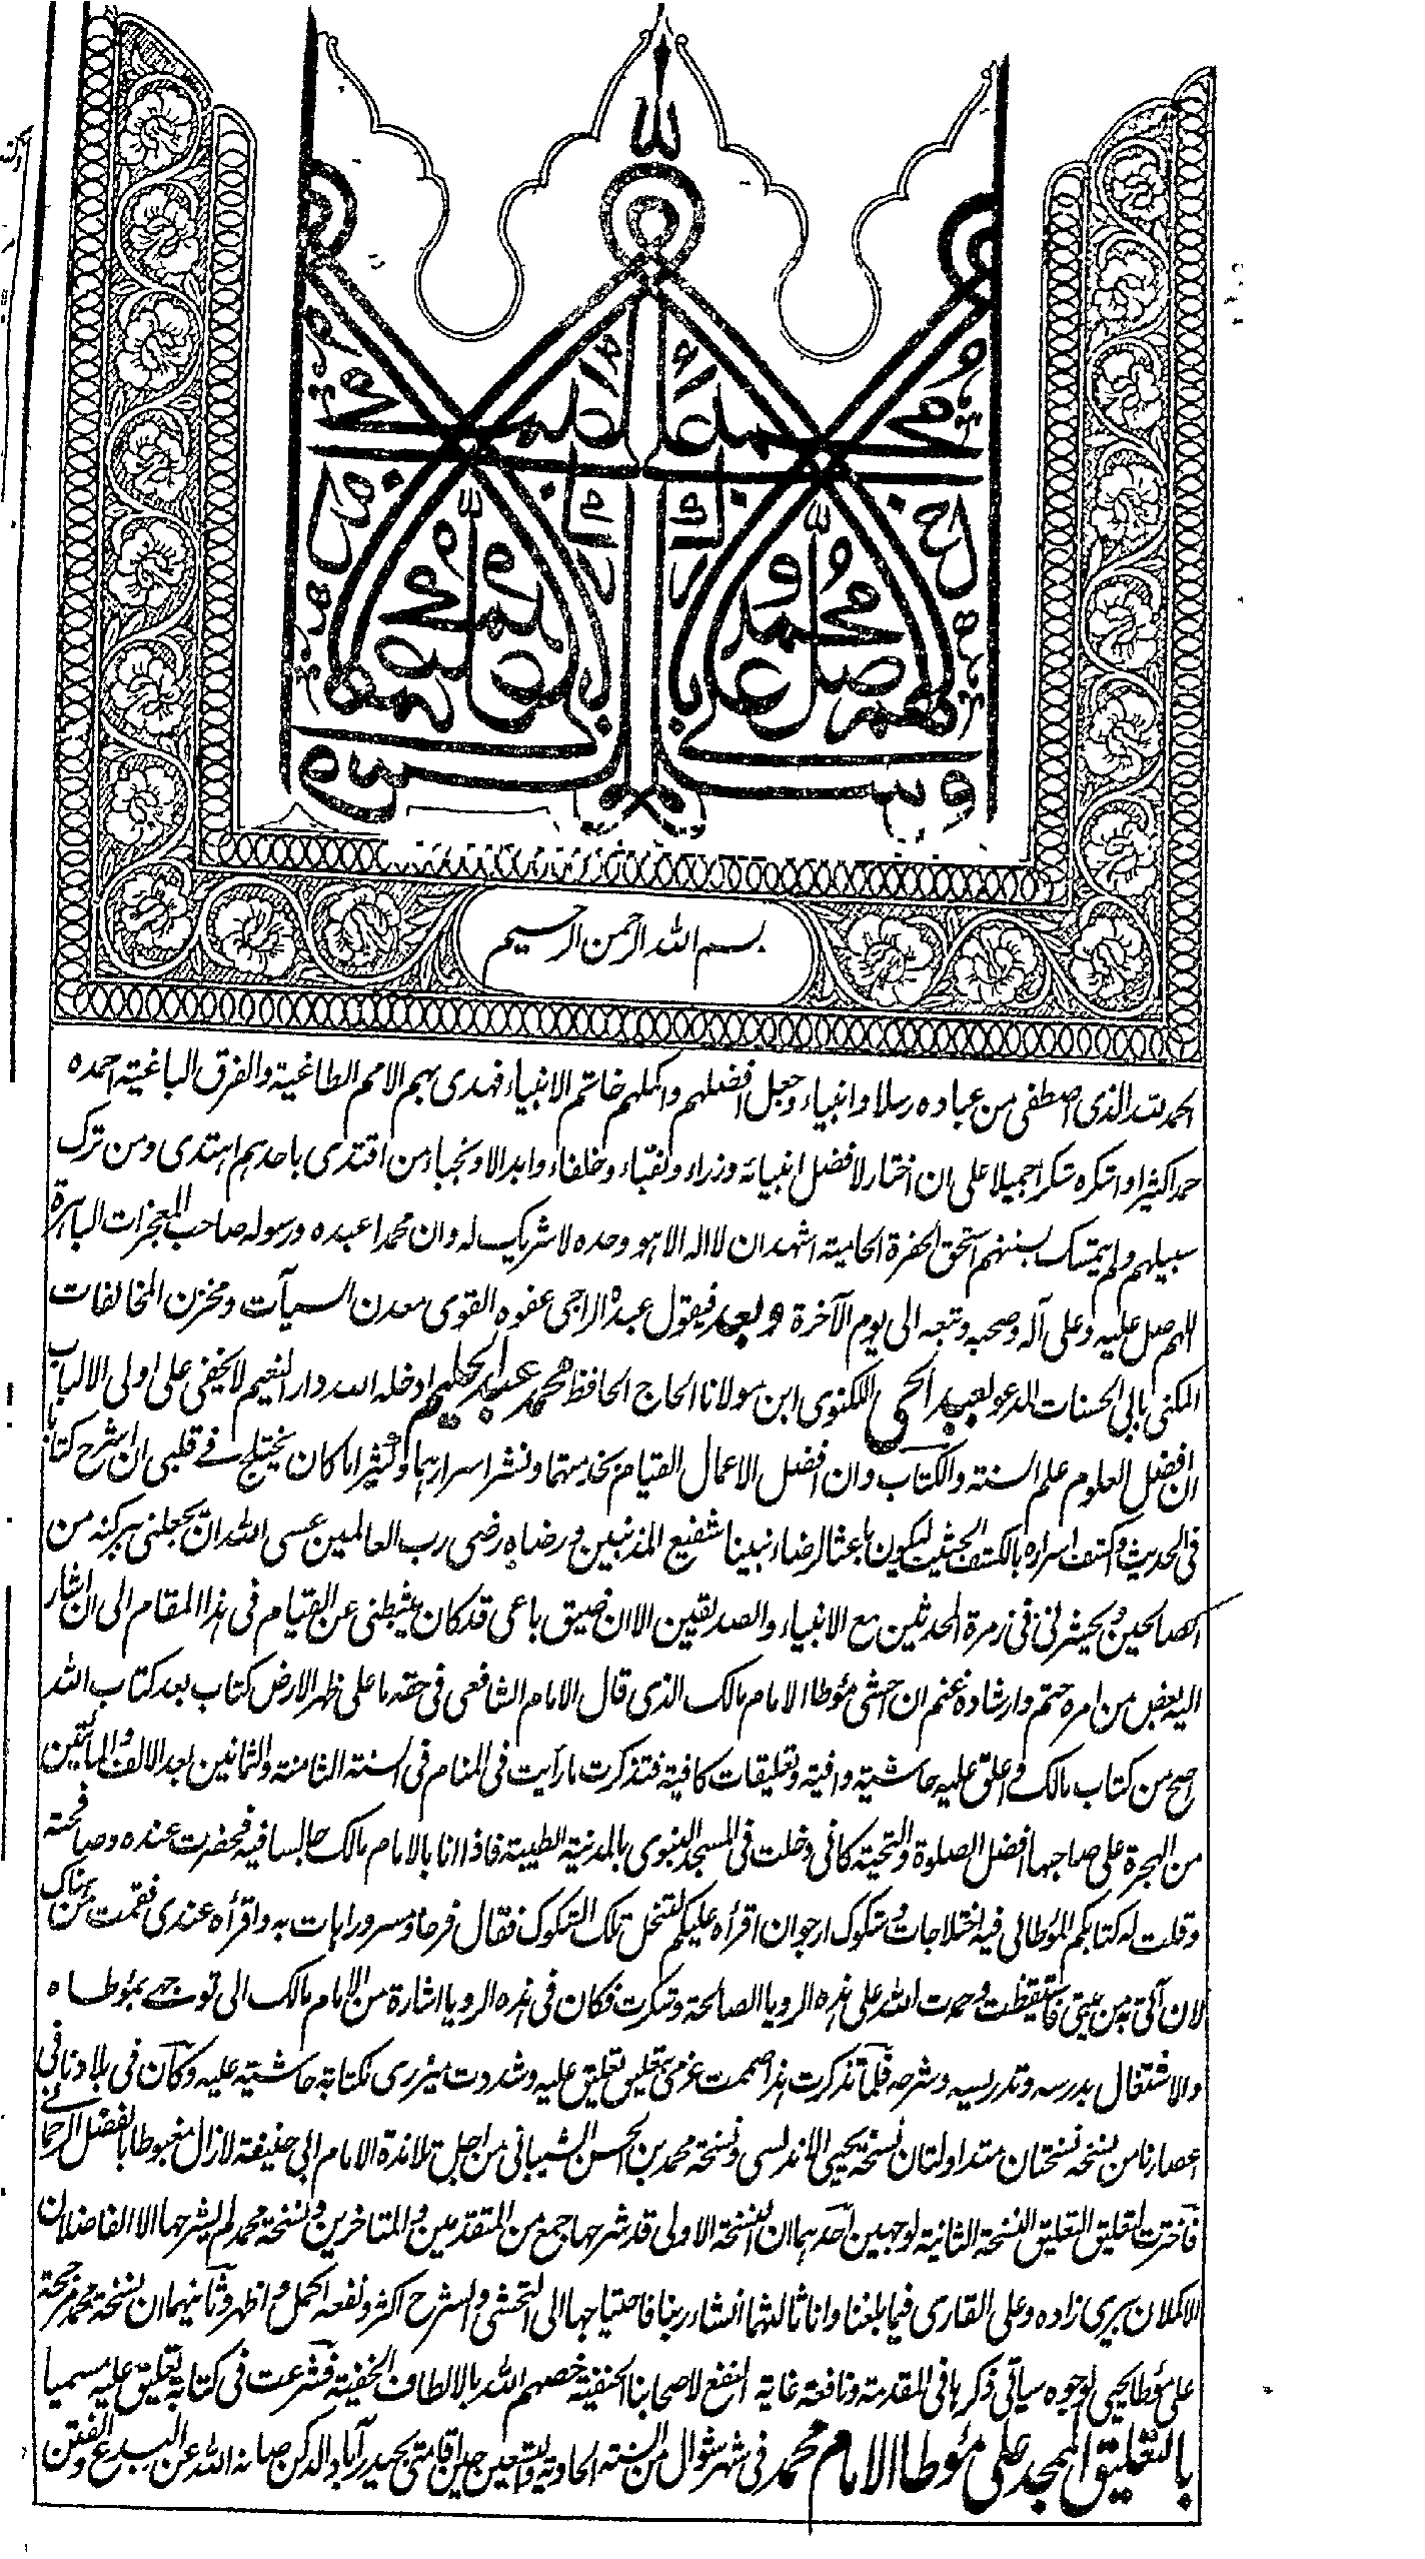 بسم الله الرحمن الرحيم
الحمد لله الذى اصطفى من عباده رسلا وانبياء وجعل افضلهم واكملهم خاتم الانبياء فهدى بهم الامم الطاغية والفرق الباغية احمده
حمدا كثيرا واشكره شكرا جميلا على ان اختار لافضل انبيائه وزراء ونقباء وخلفاء وابدالا ونجباء من اقتدى باحدهم اهتدى ومن ترك
سبيلهم ولم يتمسك بسننهم استحق الحفرة الحامية اشهد ان لا اله الا هو وحده لا شريك له وان محمدا عبده ورسوله صاحب المعجزات الباهرة
اللهم صل عليه وعلى آله وصحبه وتبعه الى يوم الآخرة وبعد فيقول عبده الراجى عفوه القوى معدن السيآت ومخزن المخالفات
المكنى بابى الحسنات المدعو بعبد الحى اللكنوى ابن مولانا الحاج الحافظ محمد عبد الحليم ادخله الله دار النعيم لا يخفى على اولى الالباب
ان افضل العلوم علم السنة والكتاب وان افضل الاعمال القيام بخدمتهما ونشر اسرارهما وكثيرا ما كان يختلج فى قلبى ان اشرح كتابا
فى الحديث واكشف اسراره بالكشف الحثيث ليكون باعثا لرضاء نبينا شفيع المذنبين ورضاه رضى رب العالمين عسى الله ان يجعلنى ببركته من
الصالحين ويحشرنى فى زمرة المحدثين مع الانبياء والصديقين الا ان ضيق باعى قد كان يثبطنى عن القيام فى هذا المقام الى ان اشار
الى بعض من امره حتم وارشاده غنم ان احشى مؤطا الامام مالك الذى قال الامام الشافعى فى حقه ما على ظهر الارض كتاب بعد كتاب الله
اصح من كتاب مالك واعلق عليه حاشية وافية وتعليقات كافية فتذكرت ما رأيت فى المنام فى السنة الثامنة والثمانين بعد الالف والمائتين
من الهجرة على صاحبها افضل الصلوة والتحية كانى دخلت فى المسجد النبوى بالمدينة الطيبة فاذا انا بالامام مالك جالسا فيه فحضرت عنده وصافحته
وقلت له كتابكم المؤطا لى فيه اختلاجات وشكوك ارجو ان اقرأه عليكم لتنحل تلك الشكوك فقال فرحا ومسرورا هات به واقرأه عندى فقمت من هناك
لان آتى به من بيتى فاستيقظت وحمدت الله على هذه الرويا الصالحة وشكرت فكان فى هذه الرويا اشارة من الامام مالك الى توجهى بمؤطاه
والاشتغال بدرسه وتدريسه وشرحه فلما تذكرت هذا صممت عزمى بتعليق تعليق عليه وشددت ميزرى لكتابة حاشية عليه وكان فى بلادنا فى
اعصارنا من نسخه نسختان متداولتان نسخة يحيى الاندلسى ونسخة محمد بن الحسن الشيبانى من اجل تلامذة الامام ابى حنيفة لا زال مغبوطا بالفضل الرحمانى
فاخترت لتعليق التعليق النسخة الثانية لوجهين احدهما ان النسخة الاولى قد شرحها جمع من المتقدمين والمتاخرين ونسخة محمد لم يشرحها الا الفاضلان
الاكملان بيرى زاده وعلى القارى فيما بلغنا وانا ثالثهما انشاء ربنا فاحتياجها الى التحشى والشرح اكثر ونفعه اكمل واظهر وثانيهما ان نسخة محمد مرجحة
على مؤطا يحيى لوجوه سيأتى ذكرها فى المقدمة ونافعة غاية النفع لاصحابنا الحنفية خصهم الله بالالطاف الخفية فشرعت فى كتابة تعليق عليه مسميا
بالتعليق الممجد على مؤطا الامام محمد فى شهر شوال من السنة الحاوية والتسعين حين اقامتى بحيدرآباد الدكن صانه الله عن البدع والفتن